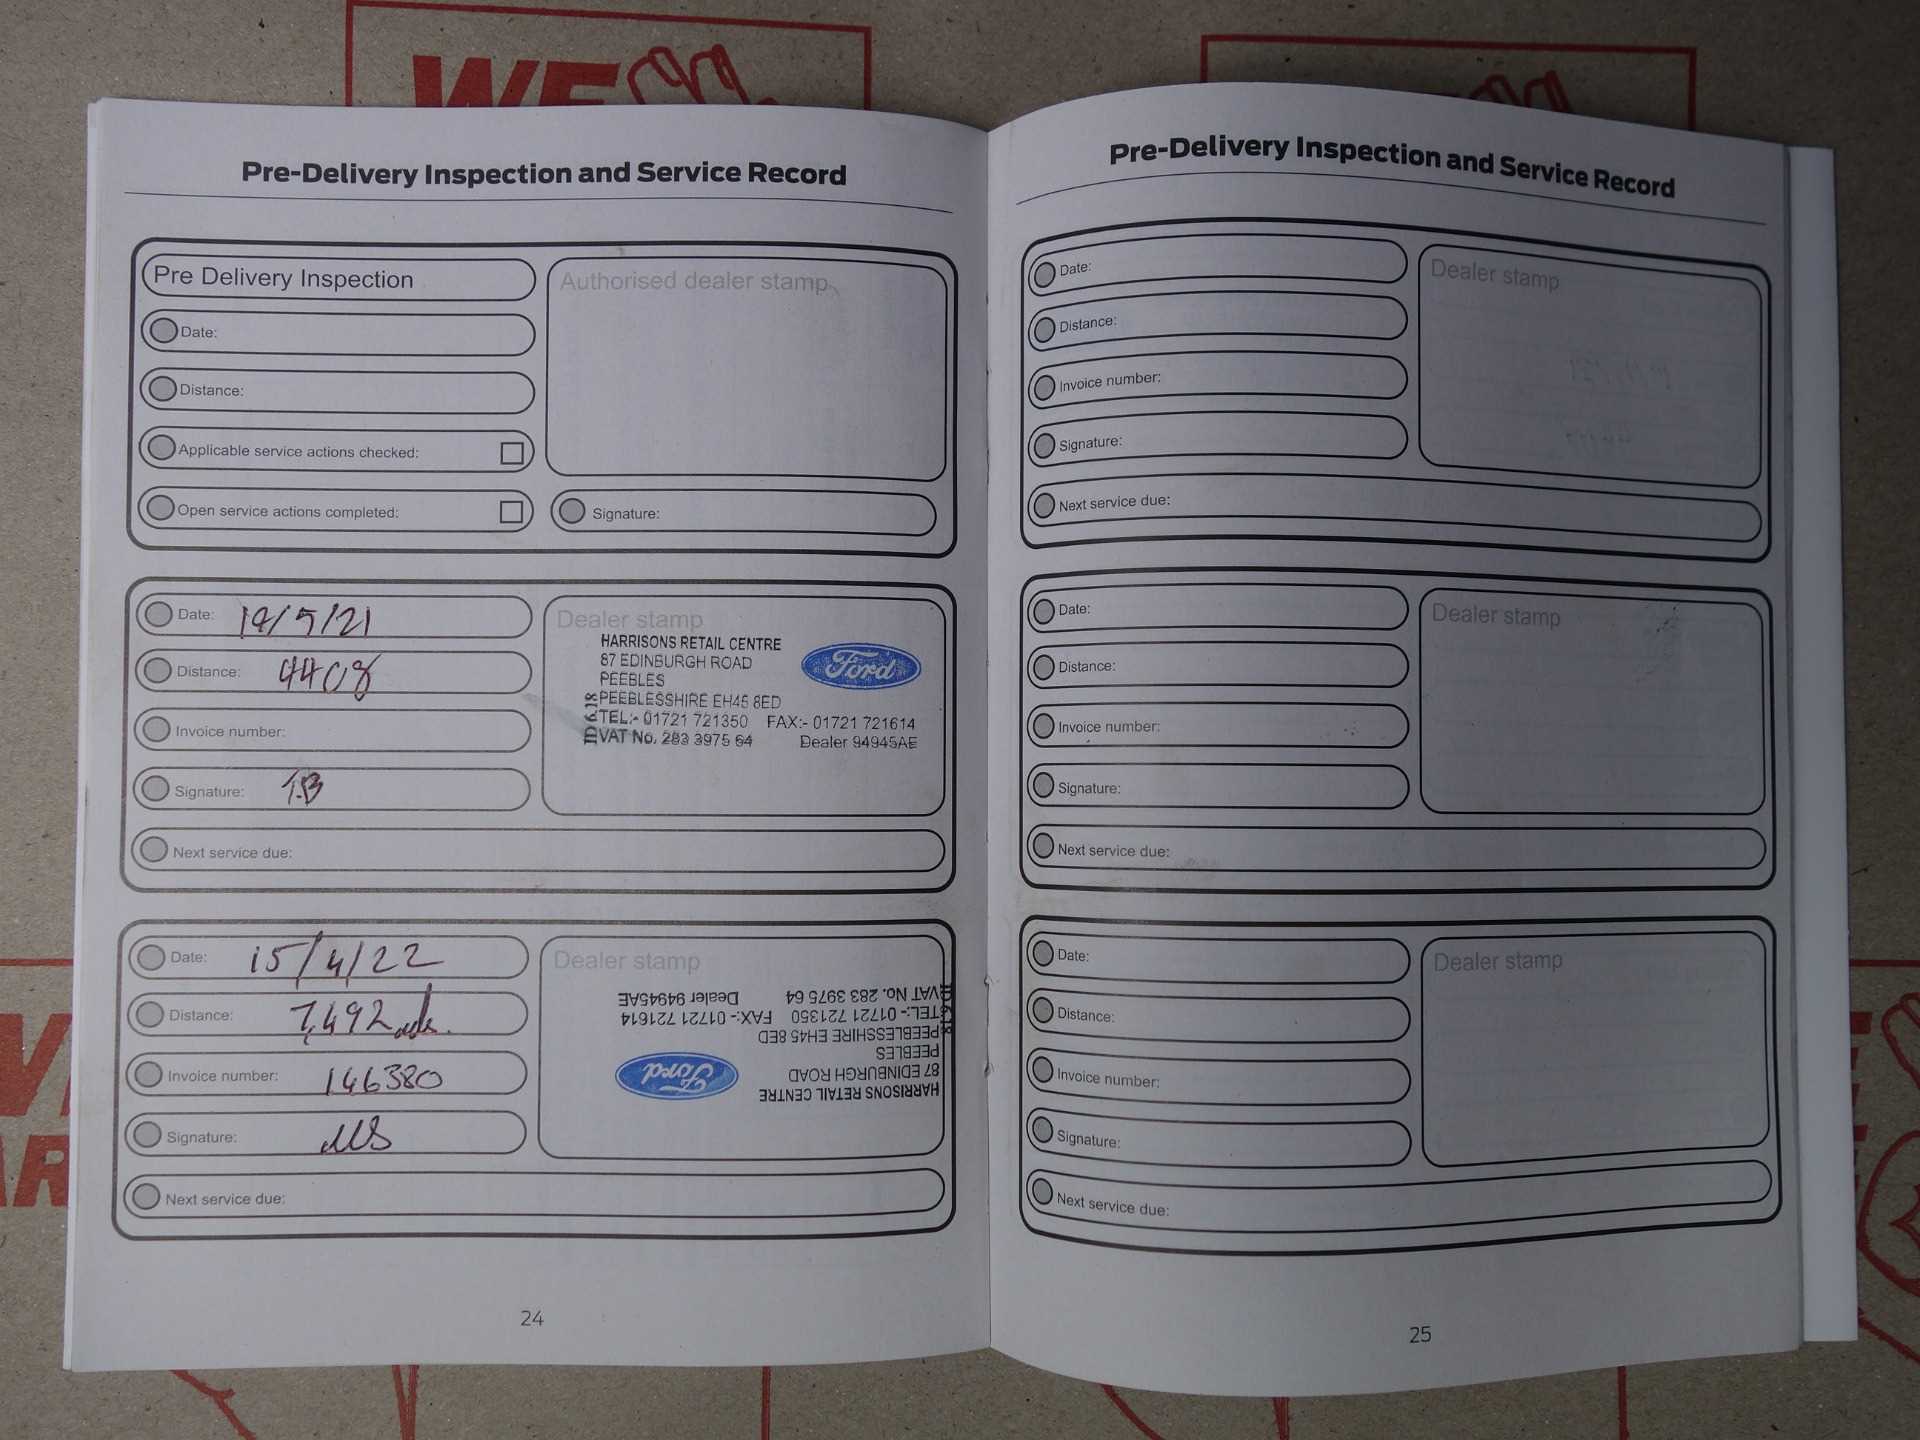 WE
Pre-Delivery Inspection and Service Record
Pre Delivery Inspection
Date:
Distance:
Applicable service actions checked:
Open service actions completed:
Authorised dealer stamp
Signature:
Date: 19/5/21
Distance: 4408
Invoice number:
Signature: T.B
Next service due:
Dealer stamp
HARRISONS RETAIL CENTRE
87 EDINBURGH ROAD
PEEBLES
PEEBLESSHIRE EH45 8ED
TEL:- 01721 721350 FAX:- 01721 721614
VAT No. 283 3975 64 Dealer 94945AE
ID 6.18
Ford
Date: 15/4/22
Distance: 7,492 mls.
Invoice number: 146380
Signature: MS
Next service due:
Dealer stamp
HARRISONS RETAIL CENTRE
87 EDINBURGH ROAD
PEEBLES
PEEBLESSHIRE EH45 8ED
TEL:- 01721 721350 FAX:- 01721 721614
VAT No. 283 3975 64 Dealer 94945AE
ID 6.18
Ford
24
Pre-Delivery Inspection and Service Record
Date:
Distance:
Invoice number:
Signature:
Next service due:
Dealer stamp
Date:
Distance:
Invoice number:
Signature:
Next service due:
Dealer stamp
Date:
Distance:
Invoice number:
Signature:
Next service due:
Dealer stamp
25